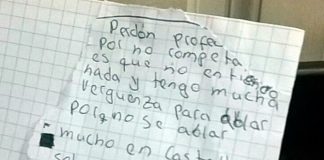 Perdón profee
por no competa
es que no entiendo
nada y tengo mucha
verguenza para ablar
porq no se ablar
mucho en Caste